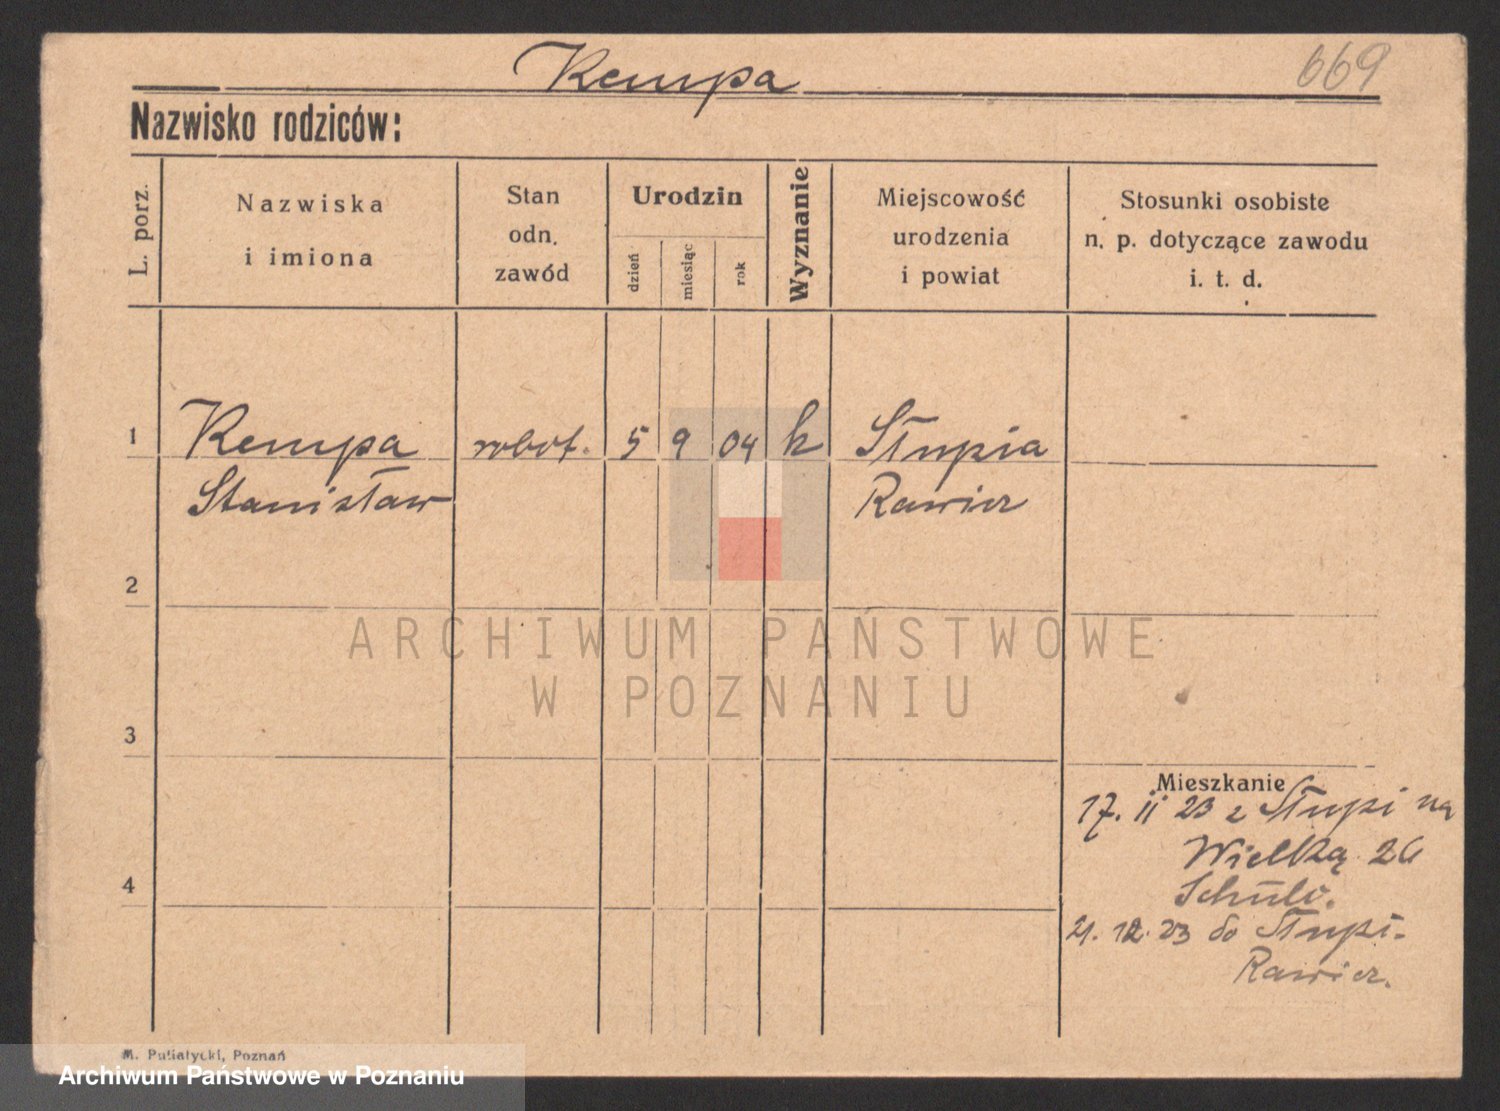 Kempa
669
Nazwisko rodziców:
L. porz.
Nazwiska
i imiona
Stan
odn.
zawód
Urodzin
dzień
miesiąc
rok
Wyznanie
Miejscowość
urodzenia
i powiat
Stosunki osobiste
n. p. dotyczące zawodu
i. t. d.
1 Kempa robot. 5 9 04 k Słupia
Stanisław Rawicz
2
ARCHIWUM PAŃSTWOWE
W POZNANIU
3
Mieszkanie
17. 11 23 z Słupi na
Wielką 26
4
21. 12. 23 do Słupi-
Rawicz.
M. Putiatycki, Poznań
Archiwum Państwowe w Poznaniu